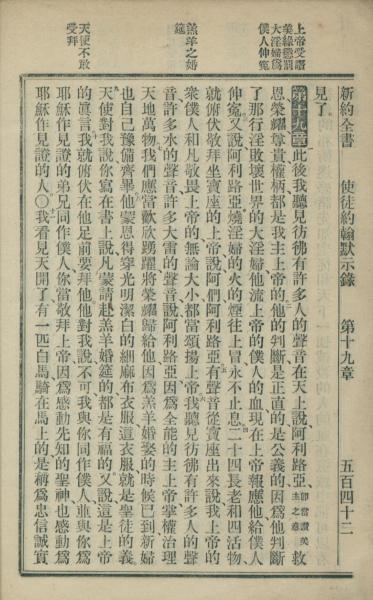 新約全書　使徒約翰默示錄　第十九章　五百四十二
上帝受讚
美緣懲罰
大淫婦爲
僕人伸冤
羔羊之婚
筵
天使不敢
受拜
見了。
第十九章 此後我聽見彷彿有許多人的聲音在天上說阿利路亞 卽當讚美主之意 救
恩榮耀尊貴權柄都是我主上帝的他的判斷是正直的是公義的因爲他判斷
了那行淫敗壞世界的大淫婦他流上帝的僕人的血現在上帝報應他給僕人
伸冤又說阿利路亞燒淫婦的火的煙往上冒永不止息二十四長老和四活物
就俯伏敬拜坐寶座的上帝說阿們阿利路亞有聲音從寶座出來說我上帝的
衆僕人和凡敬畏上帝的無論大小都當頌揚上帝我聽見彷彿有許多人的聲
音許多水的聲音許多大雷的聲音說阿利路亞因爲全能的主上帝掌權治理
天地萬物我們應當歡欣踴躍將榮耀歸給他因爲羔羊婚娶的時候已到新婦
也自己豫備齊畢他蒙恩得穿光明潔白的細麻布衣服這衣服就是聖徒的義
天使對我說你寫在書上說凡蒙請赴羔羊婚筵的都是有福的又說這是上帝
的眞言我就俯伏在他足前要拜他他對我說不可我與你同作僕人並與你爲
耶穌作見證的弟兄同作僕人你當敬拜上帝因爲感動先知的聖神也感動爲
耶穌作見證的人〇我看見天開了有一匹白馬騎在馬上的是稱爲忠信誠實